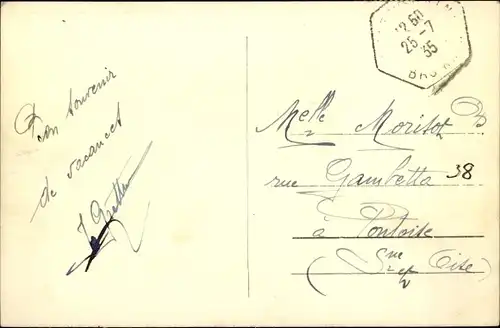 Bon souvenir
de vacances
12 50
25-7
35
Melle Morisot
rue Gambetta 38
à Pontoise
(Sne et Oise)